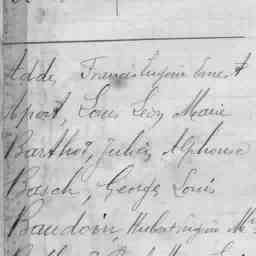 Adde, Francis Eugène Ernest
Aport, Louis Léon Marie
Barthot, Jules, Alphonse
Basch, George Louis
Baudoin, Hubert Eugène